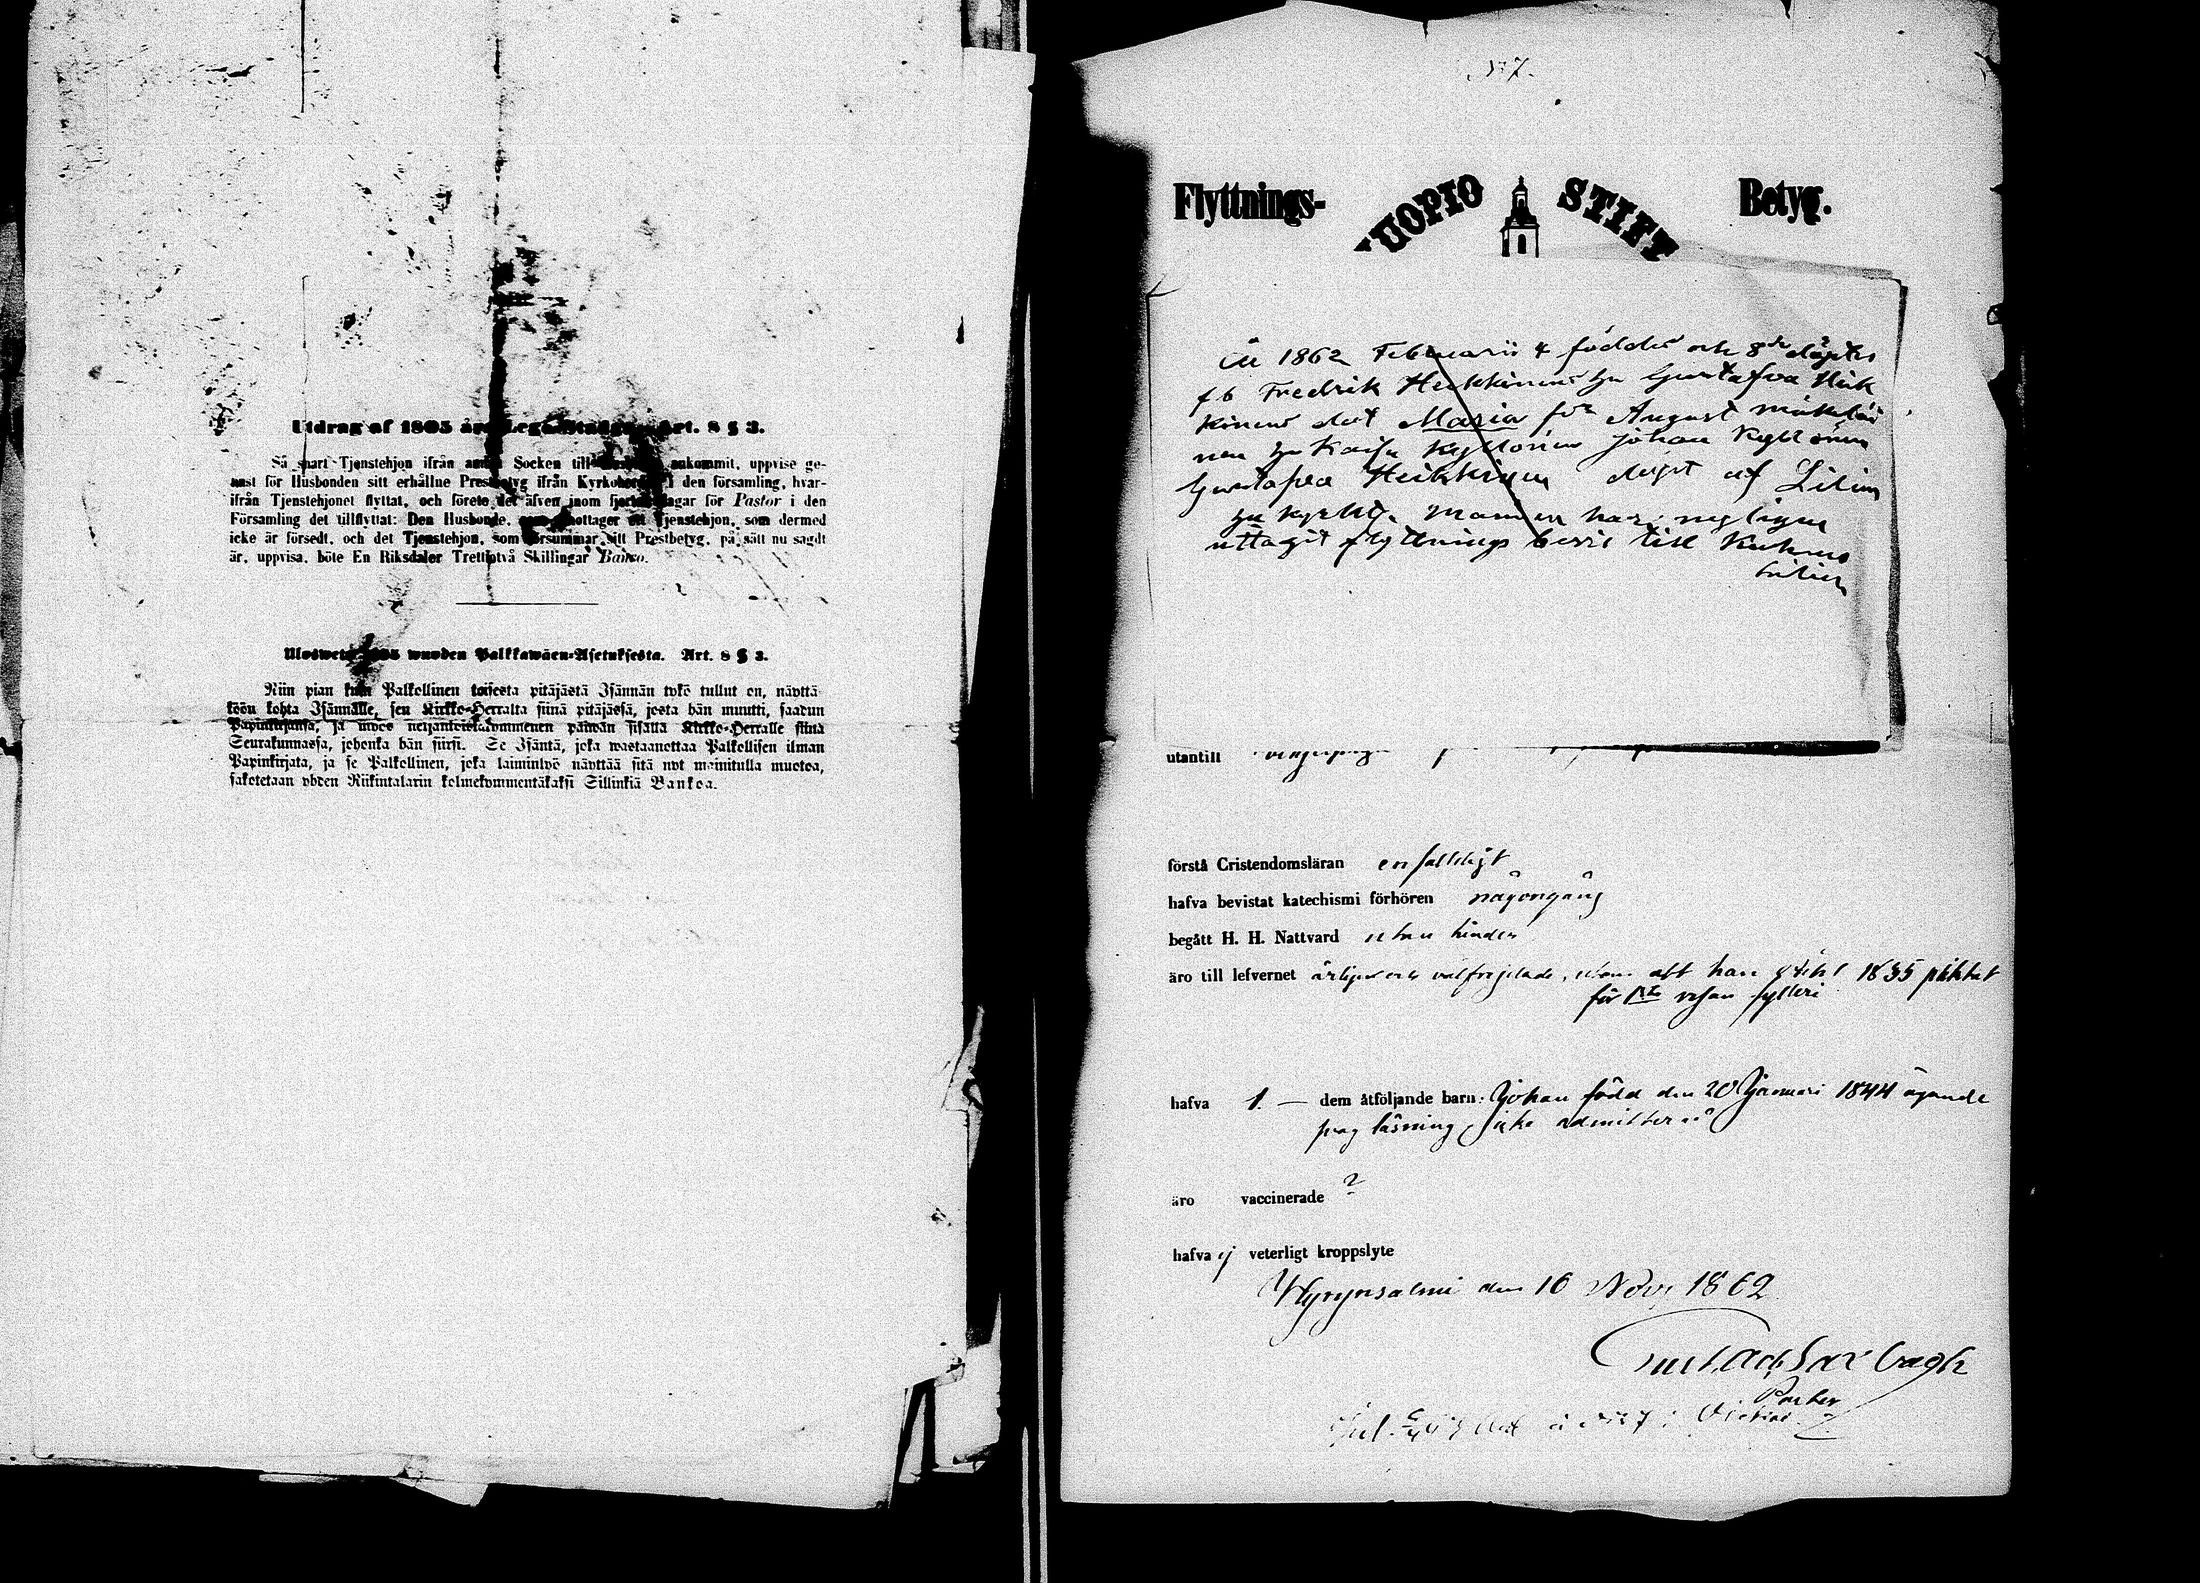 Utdrag af 1805 års Lego-Stadga Art. 8 § 3.
Så snart Tjenstehjon ifrån Socken till ankommit, uppvise ge-
nast för Husbonden sitt erhållne Prestbetyg ifrån i den församling, hvar-
ifrån Tjenstehjonet flyttat, och förete det äfven inom dagar för Pastor i den
Församling det tillflyttat: Den Husbonde, som emottager ett Tjenstehjon, som dermed
icke är försedt, och det Tjenstehjon, som försummar sitt Prestbetyg, på sätt nu sagdt
är, uppvisa, böte En Riksdaler Trettiotvå Skillingar Banco.
Uloswete 1805 wuoden Palkkawäen-Asetuksesta. Art. 8 § 3.
Niin pian kuin Palkollinen toisesta pitäjästä Isännän tykö tullut on, näyttä-
köön kohta Isännälle, sen Kirkko-Herralta siinä pitäjässä, josta hän muutti, saadun
Papinkirjansa, ja myös neljäntoistakymmenen päiwän sisällä Kirkko-Herralle siinä
Seurakunnassa, johonka hän siirsi. Se Isäntä, joka wastaanottaa Palkollisen ilman
Papinkirjata, ja se Palkollinen, joka laiminlyö näyttää sitä nyt mainitulla muotoa,
saketetaan yhden Riikintalarin kolmekymmentäkaksi Sillinkiä Bankoa.
N:o 7.
Flyttnings- KUOPIO STIFT Betyg.
År 1862 Februarii 4 föddes och 8de döptes
Fredrik Heikkinens hu Gustafva Heik
kinens dot Maria för August
nen hu Kaisa Kyllönen Johan Kyllönen
Gustafva Heikkinen döpt af
hu Mannen har
uttagit flyttnings bevis till Kuhmo
utantill
förstå Cristendomsläran enfaldigt
hafva bevistat katechismi förhören någongång
begått H. H. Nattvard utan hinder
äro till lefvernet ärlige och välfrejdade, utom att han 1855 pliktat
för 1sta resan fylleri
hafva 1. — dem åtföljande barn: Johan född den 20 Januari 1844 ägande
svag läsning, icke admitterad
äro vaccinerade ?
hafva ej veterligt kroppslyte
Hyrynsalmi den 16 Nov. 1862
Pastor